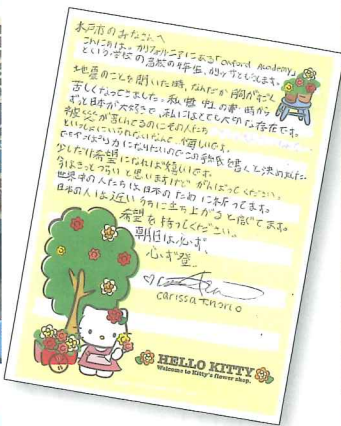 水戸市のみなさんへ
こんにちは。カリフォルニアにある「Oxford Academy」
という学校の高校の4年生、カリッサといいます。
地震のことを聞いた時、なんだか胸がすごく
苦しくなってきました。私は 時から
ずっと日本が大好きで、私にはとても大切な存在です。
皆さんが苦しんでるのにその人たち
といっしょにいられないなんて、悔しいです。
でもやっぱり力になりたいのでこの手紙を書くと決めました。
少しだけ希望になれば嬉しいです。
今はきっとつらいと思いますけど がんばってください。
世界中の人たちは日本のために祈ってます。
日本の人は近いうちに立ち上がると信じてます。
希望を持ってください。
朝日は必ず
心ず登。
carissa tenorio
HELLO KITTY
Welcome to Kitty's flower shop.